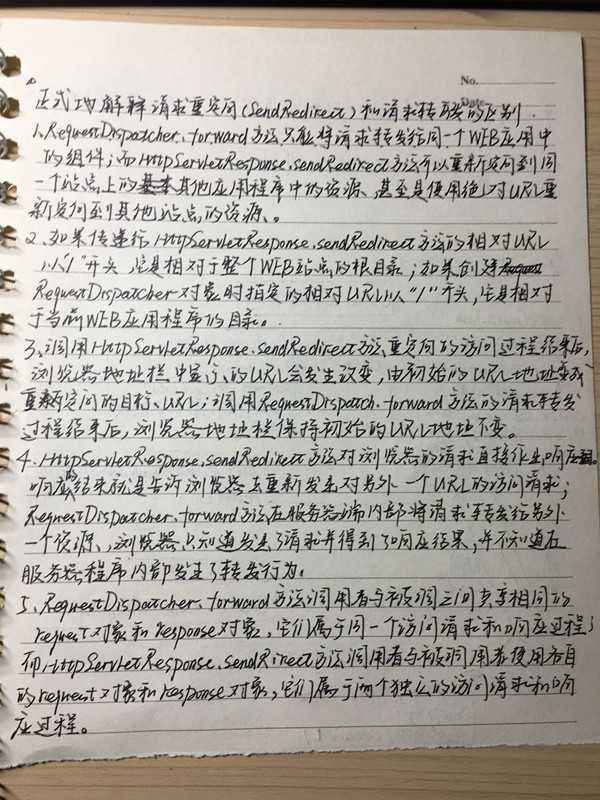 No.
Date
正式地解释请求重定向(SendRedirect)和请求转发的区别.
1、RequestDispatcher.forward方法只能将请求转发给同一个WEB应用中
的组件;而HttpServletResponse.sendRedirect方法可以重新定向到同
一个站点上的其他应用程序中的资源、甚至是使用绝对URL重
新定向到其他站点的资源。
2、如果传递给HttpServletResponse.sendRedirect方法的相对URL
以"/"开头,它是相对于整个WEB站点的根目录;如果创建
RequestDispatcher对象时指定的相对URL以"/"开头,它是相对
于当前WEB应用程序的目录。
3、调用HttpServletResponse.sendRedirect方法重定向的访问过程结束后,
浏览器地址栏中显示的URL会发生改变,由初始的URL地址变成
重新定向的目标URL;调用RequestDispatch.forward方法的请求转发
过程结束后,浏览器地址栏保持初始的URL地址不变。
4、HttpServletResponse.sendRedirect方法对浏览器的请求直接作出响应.
响应的结果就是告诉浏览器去重新发出对另外一个URL的访问请求;
RequestDispatcher.forward方法在服务器端内部将请求转发给另外
一个资源,浏览器只知道发出了请求并得到了响应结果,并不知道在
服务器程序内部发生了转发行为.
5、RequestDispatcher.forward方法调用者与被调之间共享相同的
request对象和response对象,它们属于同一个访问请求和响应过程;
而HttpServletResponse.sendRirect方法调用者与被调用者使用各自
的request对象和response对象,它们属于两个独立的访问请求和响
应过程。